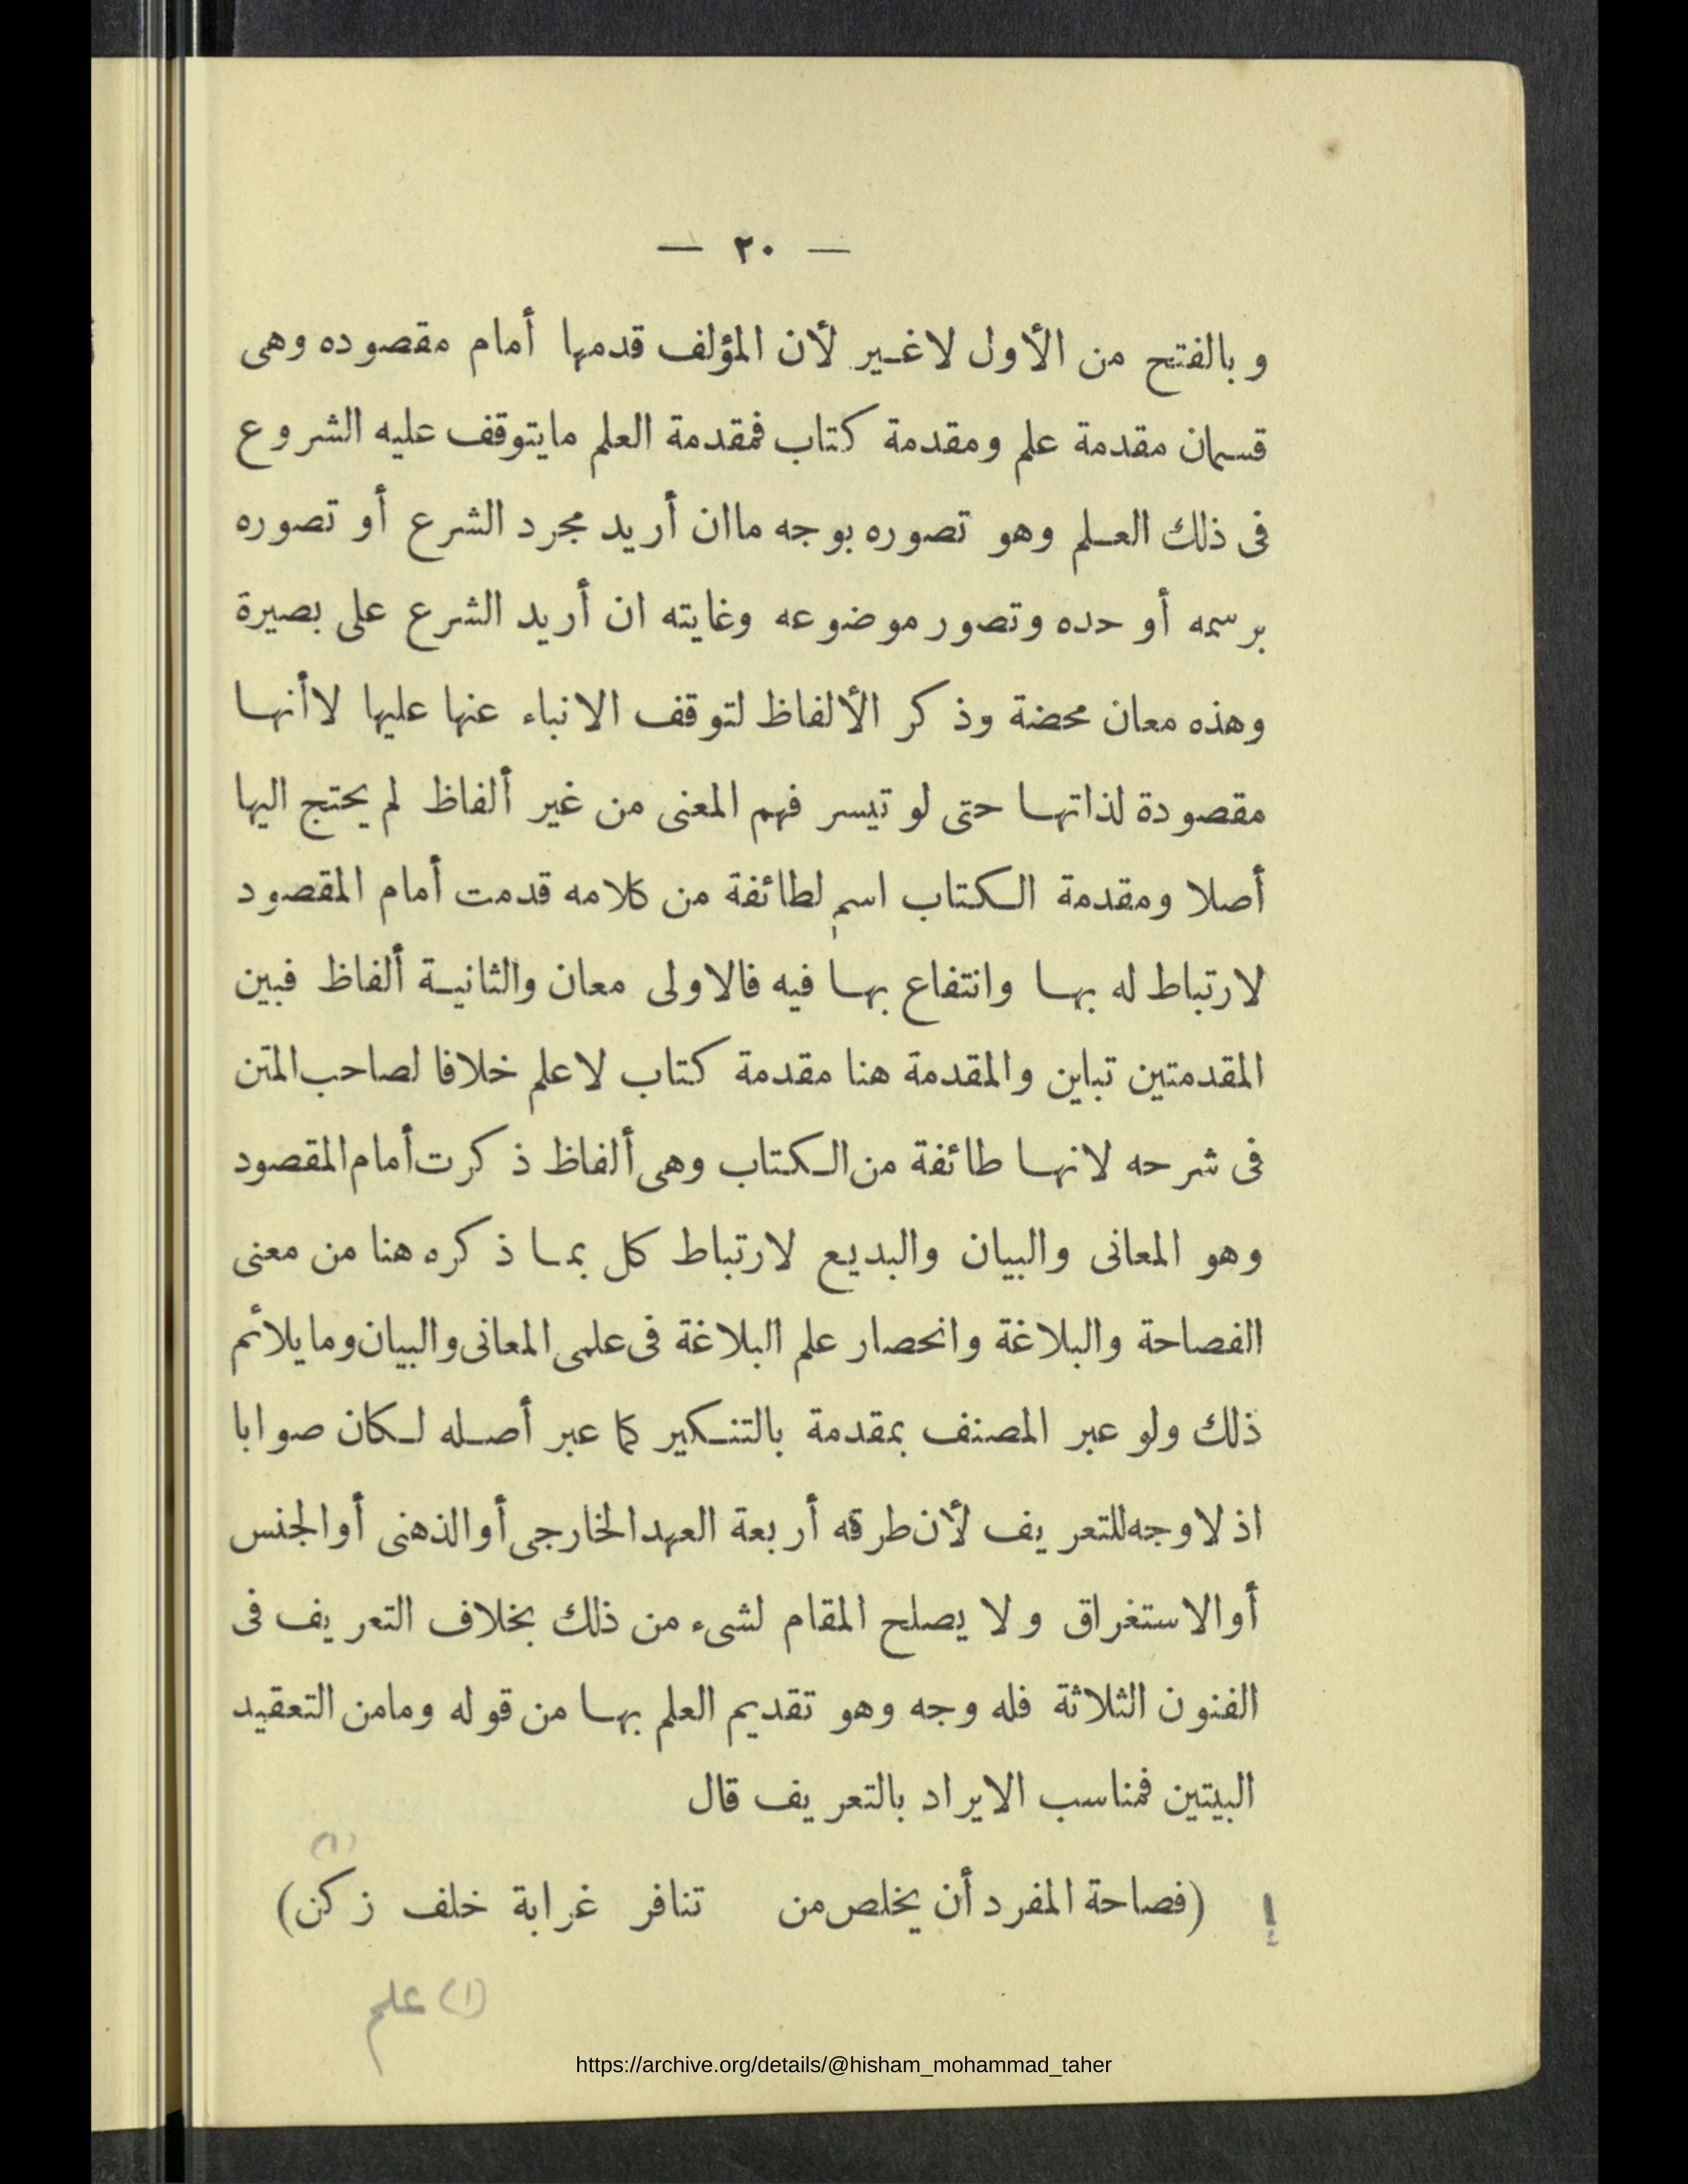 — ٢٠ —
وبالفتح من الأول لاغير لأن المؤلف قدمها أمام مقصوده وهى
قسمان مقدمة علم ومقدمة كتاب فمقدمة العلم مايتوقف عليه الشروع
فى ذلك العلم وهو تصوره بوجه ماان أريد مجرد الشرع أو تصوره
برسمه أو حده وتصور موضوعه وغايته ان أريد الشرع على بصيرة
وهذه معان محضة وذكر الألفاظ لتوقف الانباء عنها عليها لاأنها
مقصودة لذاتها حتى لو تيسر فهم المعنى من غير ألفاظ لم يحتج اليها
أصلا ومقدمة الكتاب اسم لطائفة من كلامه قدمت أمام المقصود
لارتباط له بها وانتفاع بها فيه فالاولى معان والثانية ألفاظ فبين
المقدمتين تباين والمقدمة هنا مقدمة كتاب لاعلم خلافا لصاحب المتن
فى شرحه لانها طائفة من الكتاب وهى ألفاظ ذكرت أمام المقصود
وهو المعانى والبيان والبديع لارتباط كل بما ذكره هنا من معنى
الفصاحة والبلاغة وانحصار علم البلاغة فى علمى المعانى والبيان ومايلائم
ذلك ولو عبر المصنف بمقدمة بالتنكير كما عبر أصله لكان صوابا
اذ لاوجه للتعريف لأن طرقه أربعة العهد الخارجى أو الذهنى أو الجنس
أو الاستغراق ولا يصلح المقام لشىء من ذلك بخلاف التعريف فى
الفنون الثلاثة فله وجه وهو تقديم العلم بها من قوله ومامن التعقيد
البيتين فمناسب الايراد بالتعريف قال
(١)
(فصاحة المفرد أن يخلص من تنافر غرابة خلف زكن)
(١) علم
https://archive.org/details/@hisham_mohammad_taher